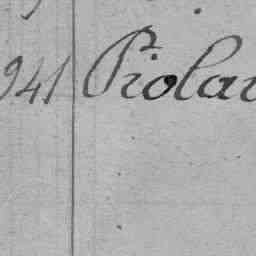 941 Piolar